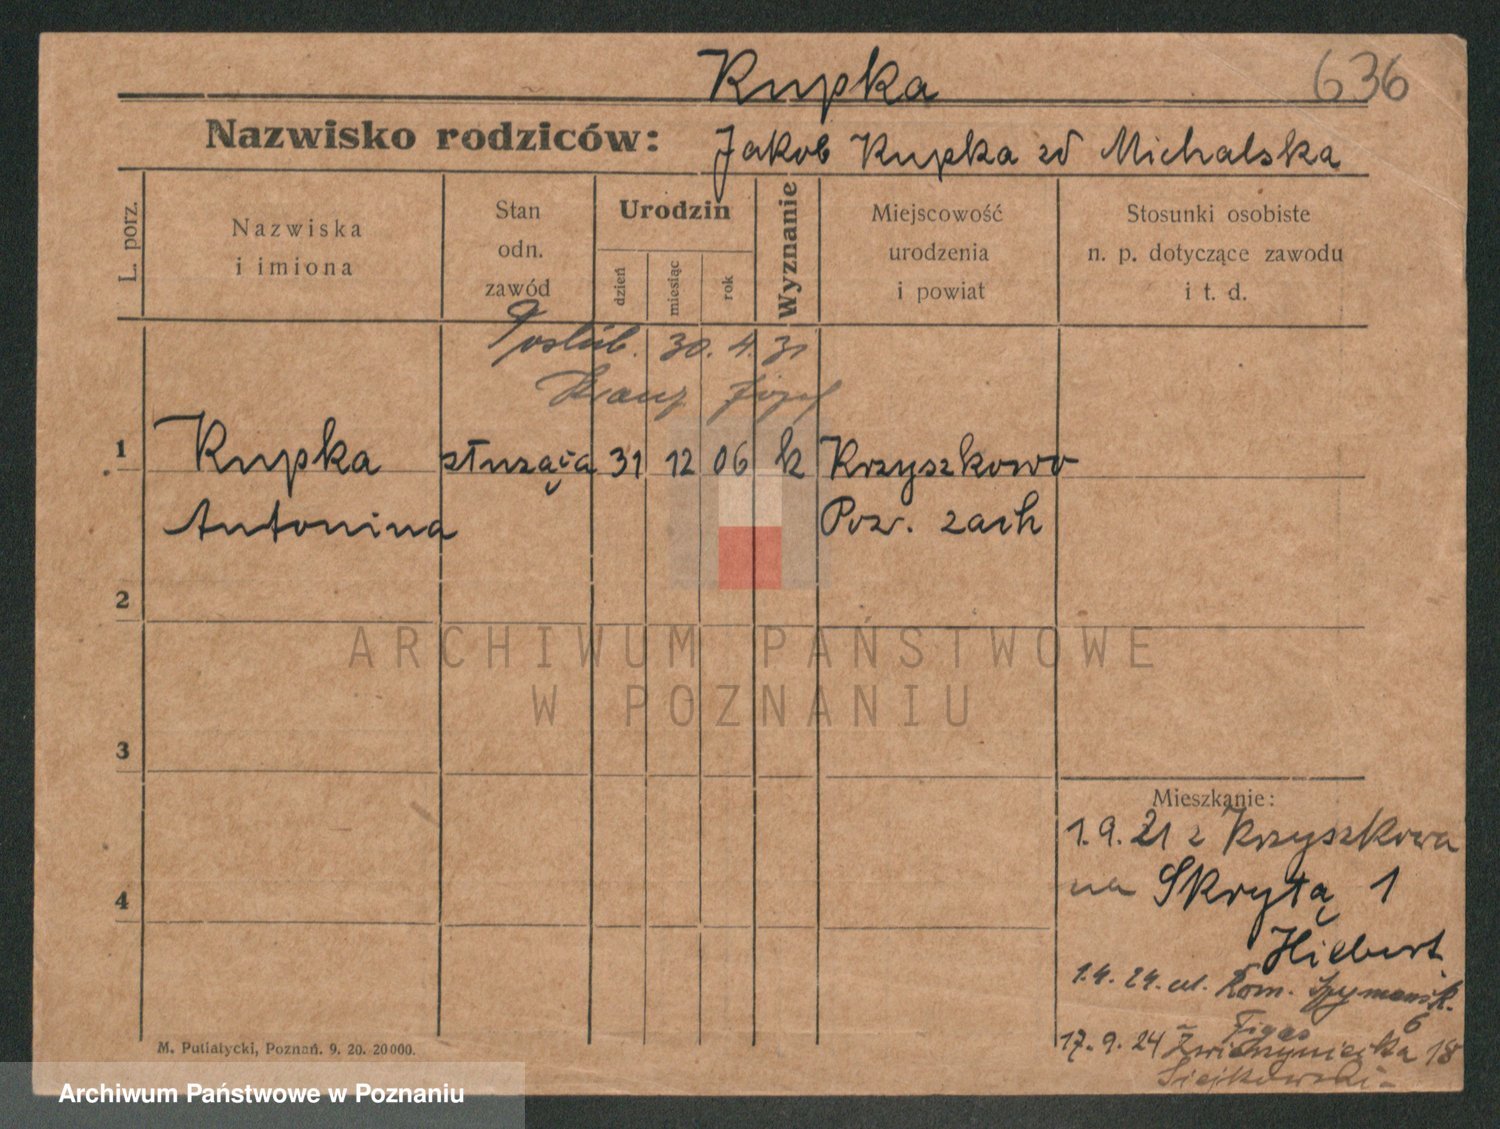 Kupka 636
Nazwisko rodziców: Jakob Kupka zd Michalska
L. porz.
Nazwiska
i imiona
Stan
odn.
zawód
Urodzin
dzień
miesiąc
rok
Wyznanie
Miejscowość
urodzenia
i powiat
Stosunki osobiste
n. p. dotyczące zawodu
i t. d.
Poślub. 30. 4. 31
Józef
1 Kupka służąca 31 12 06 k Krzyszkowo
Antonina Poz. zach
2
3
4
Mieszkanie:
1. 9. 21 z Krzyszkowa
na Skrytą 1
Hiebert
1.4. 24. ul. Rom. Szymańsk.
6
Figas
17. 9. 24 Zwierzyniecka 18
Siejkowski
M. Putiatycki, Poznań. 9. 20. 20000.
ARCHIWUM PAŃSTWOWE
W POZNANIU
Archiwum Państwowe w Poznaniu